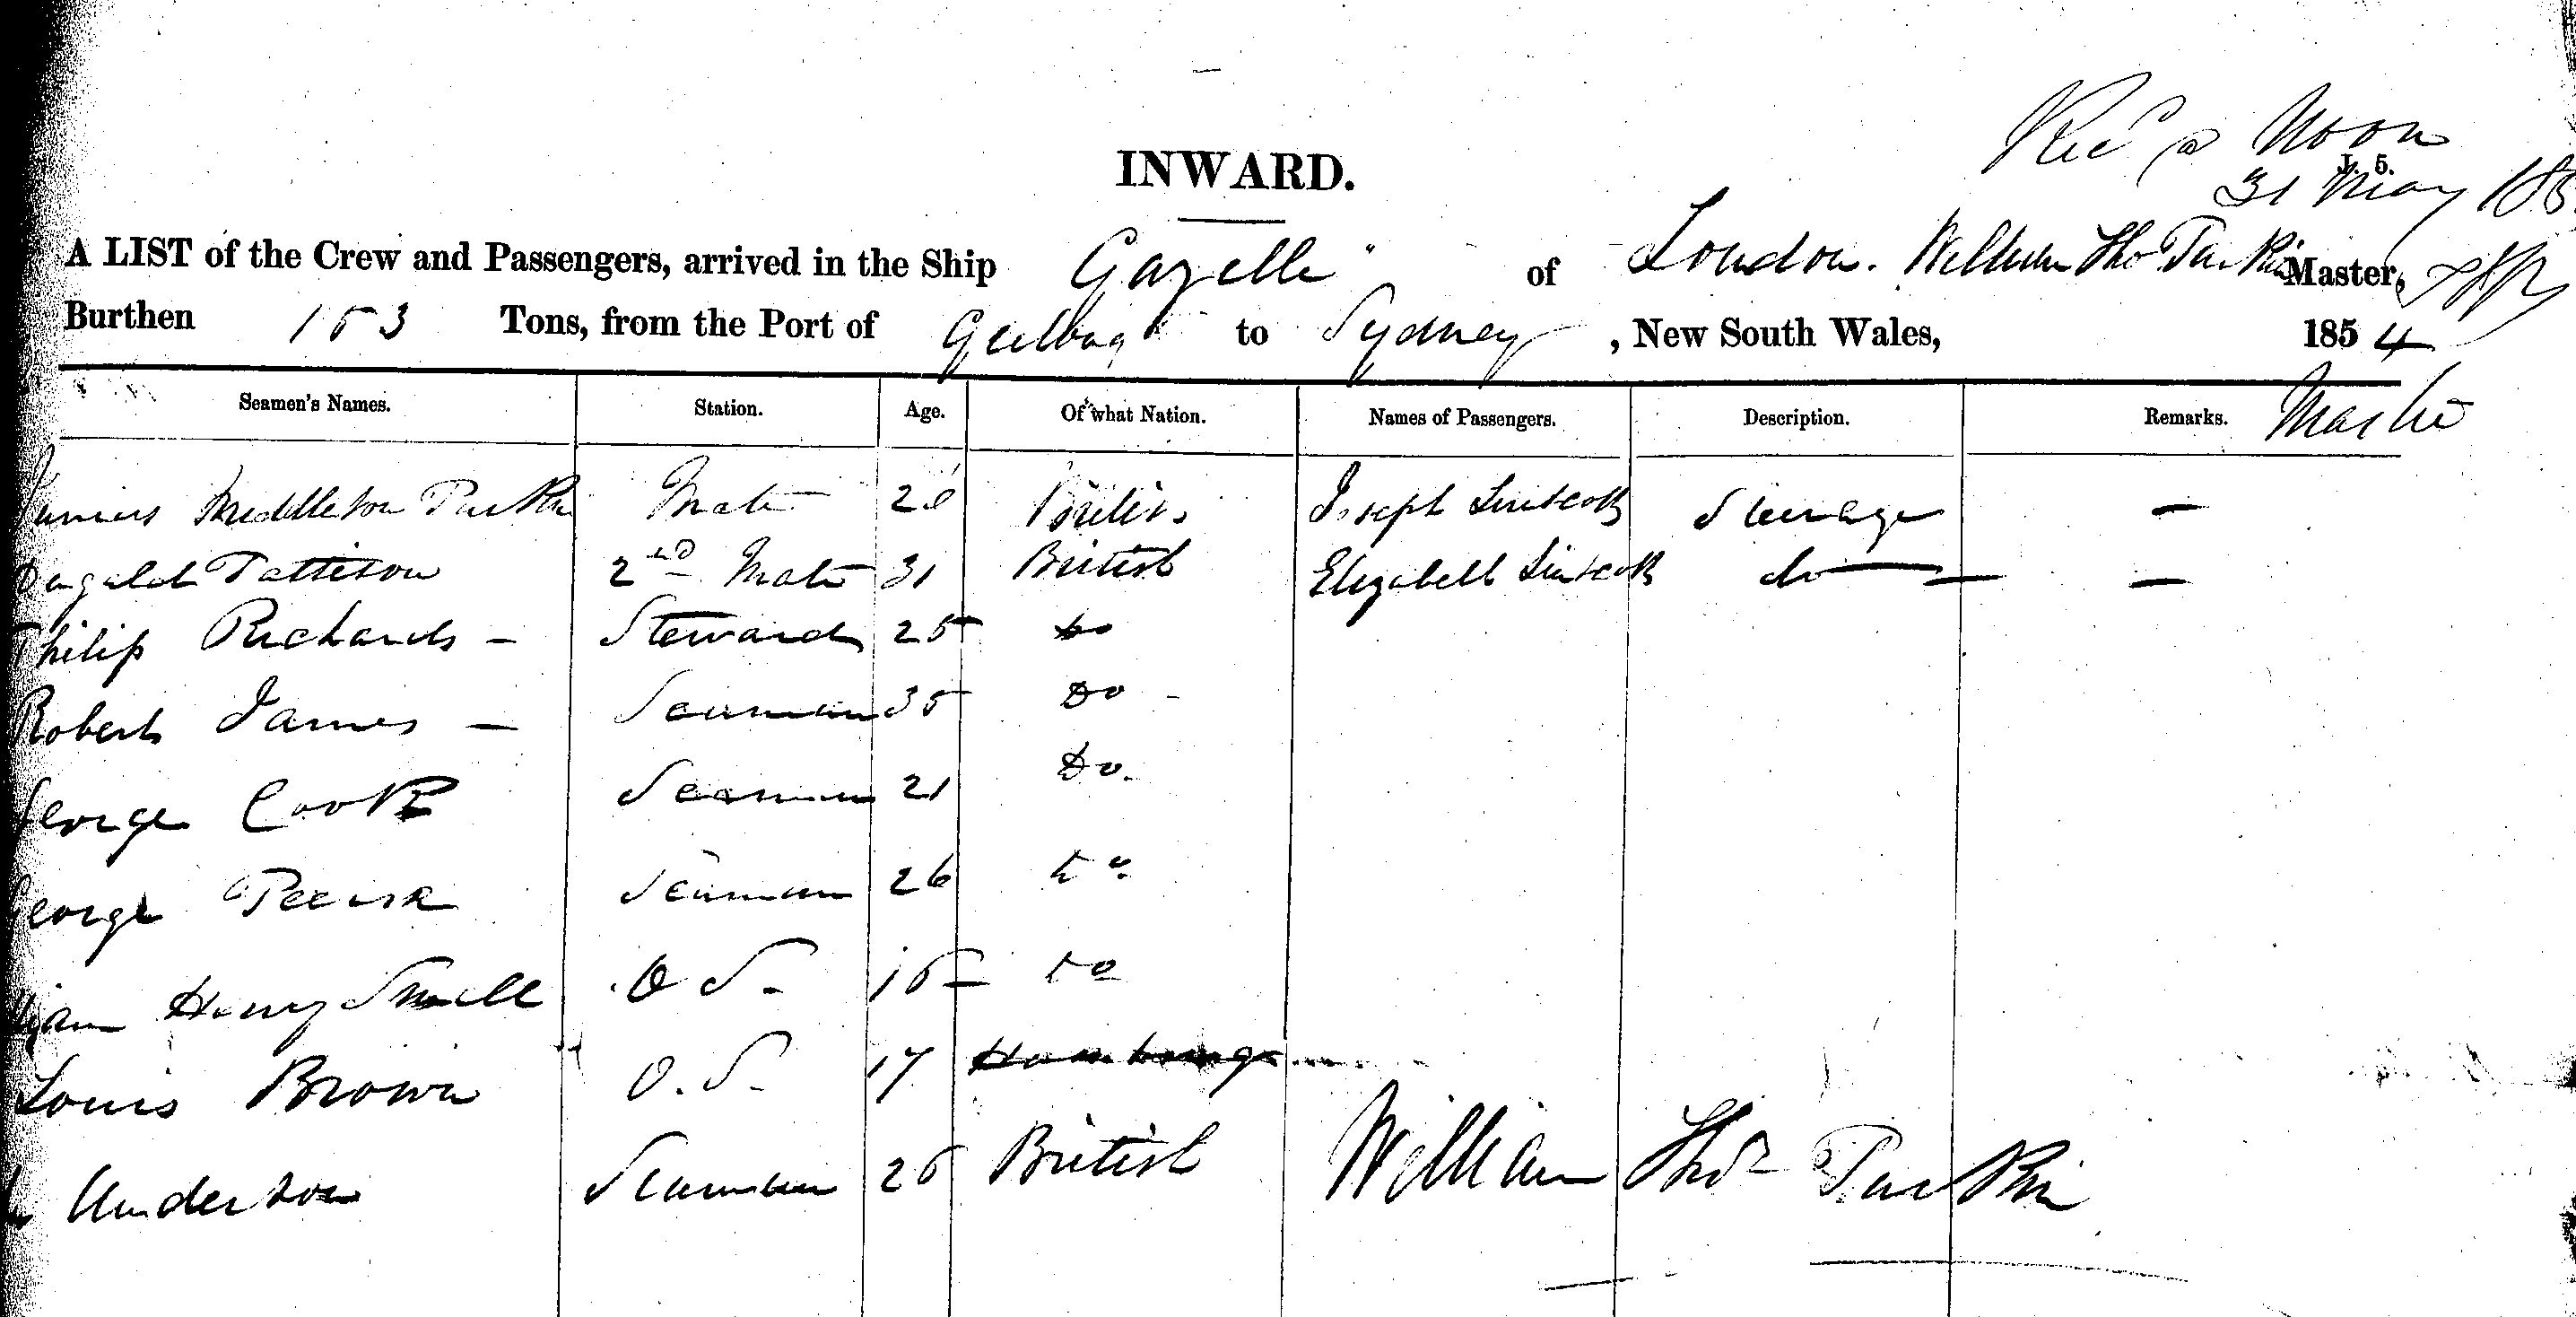 Recd @ Noon
J. 5.
31 May 185
INWARD.
A LIST of the Crew and Passengers, arrived in the Ship Gazelle" of London. William Tho Parkin Master,
Burthen 153 Tons, from the Port of Geelong to Sydney, New South Wales, 1854
Seamen's Names. Station. Age. Of what Nation. Names of Passengers. Description. Remarks.
James Middleton Parkin Mate 28 British Joseph Linscott Steerage —
Dugald Pattison 2nd Mate 31 British Elizabeth Linscott do —
Philip Richards — Steward 25 Do
Robert James — Seaman 35 Do -
George Cook Seaman 21 Do.
George Seaman 26 Do
Henry Small O S - 15 Do
Louis Brown O. S. 17 Hamburg
Anderson Seaman 25 British William Thos Parkin